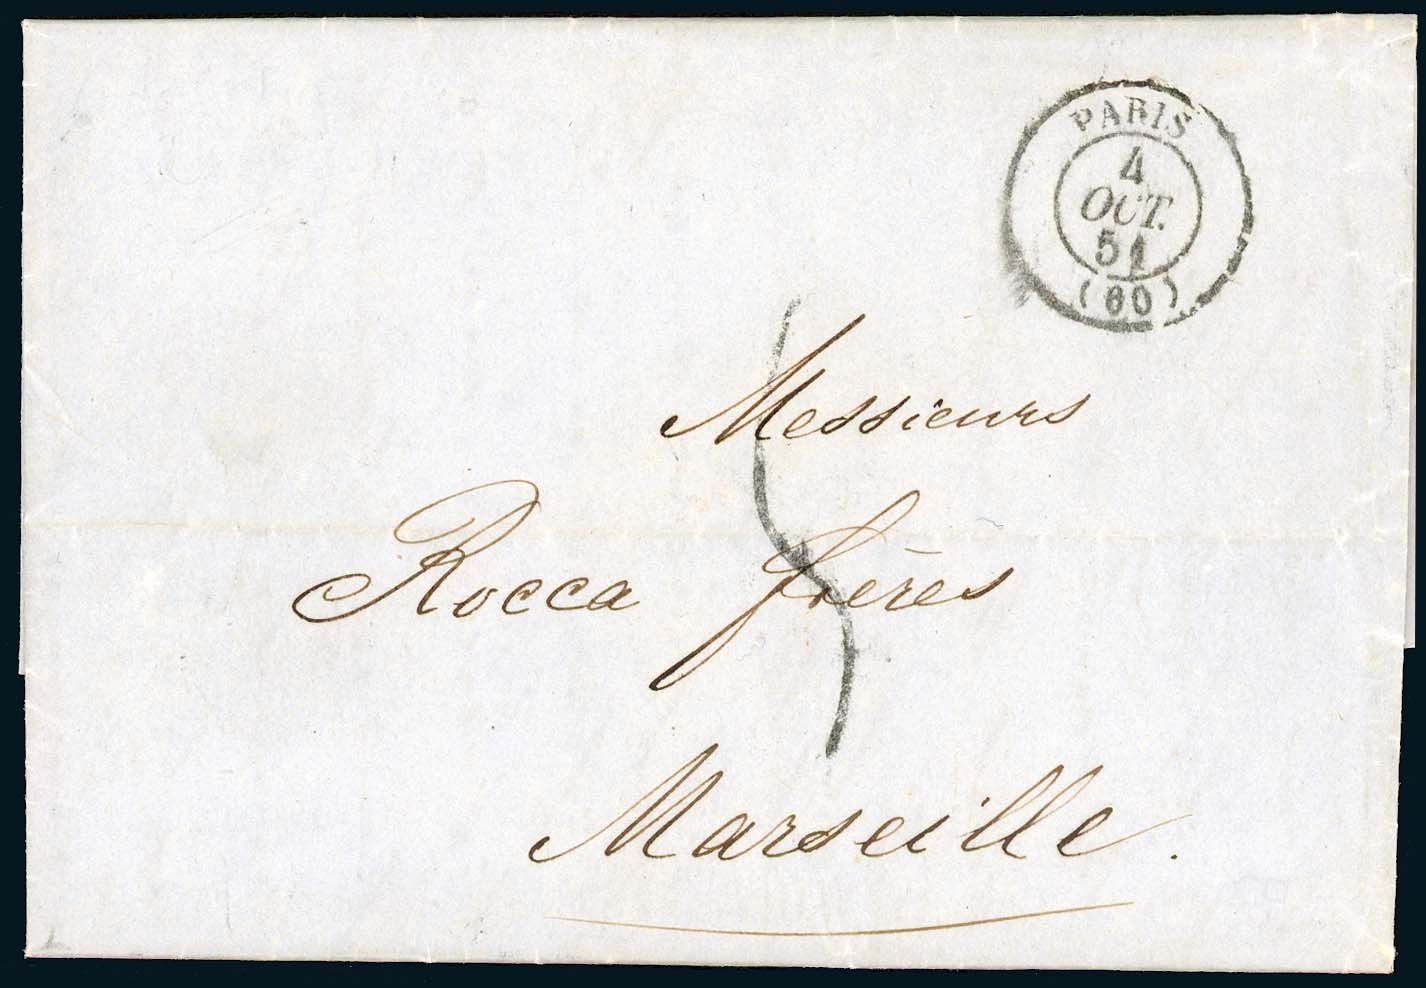 PARIS
4
OCT.
51
(60)
Messieurs
Rocca frères
Marseille.